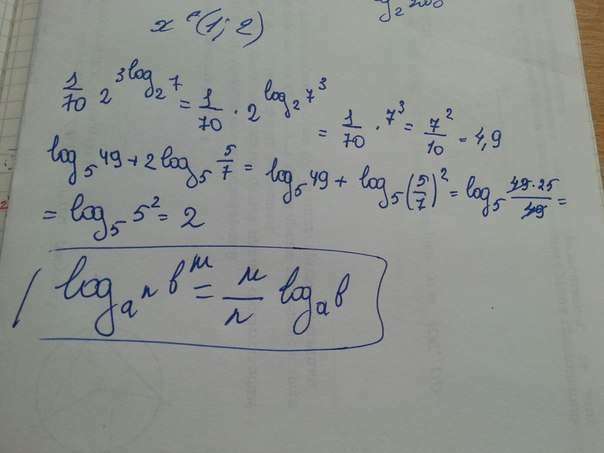 x ∈ (1; 2)
1/70 2^(3log_2 7) = 1/70 · 2^(log_2 7^3) = 1/70 · 7^3 = 7^2/10 = 4,9
log_5 49 + 2 log_5 5/7 = log_5 49 + log_5 (5/7)^2 = log_5 (49·25)/49 =
= log_5 5^2 = 2
log_(a^n) b^m = m/n log_a b